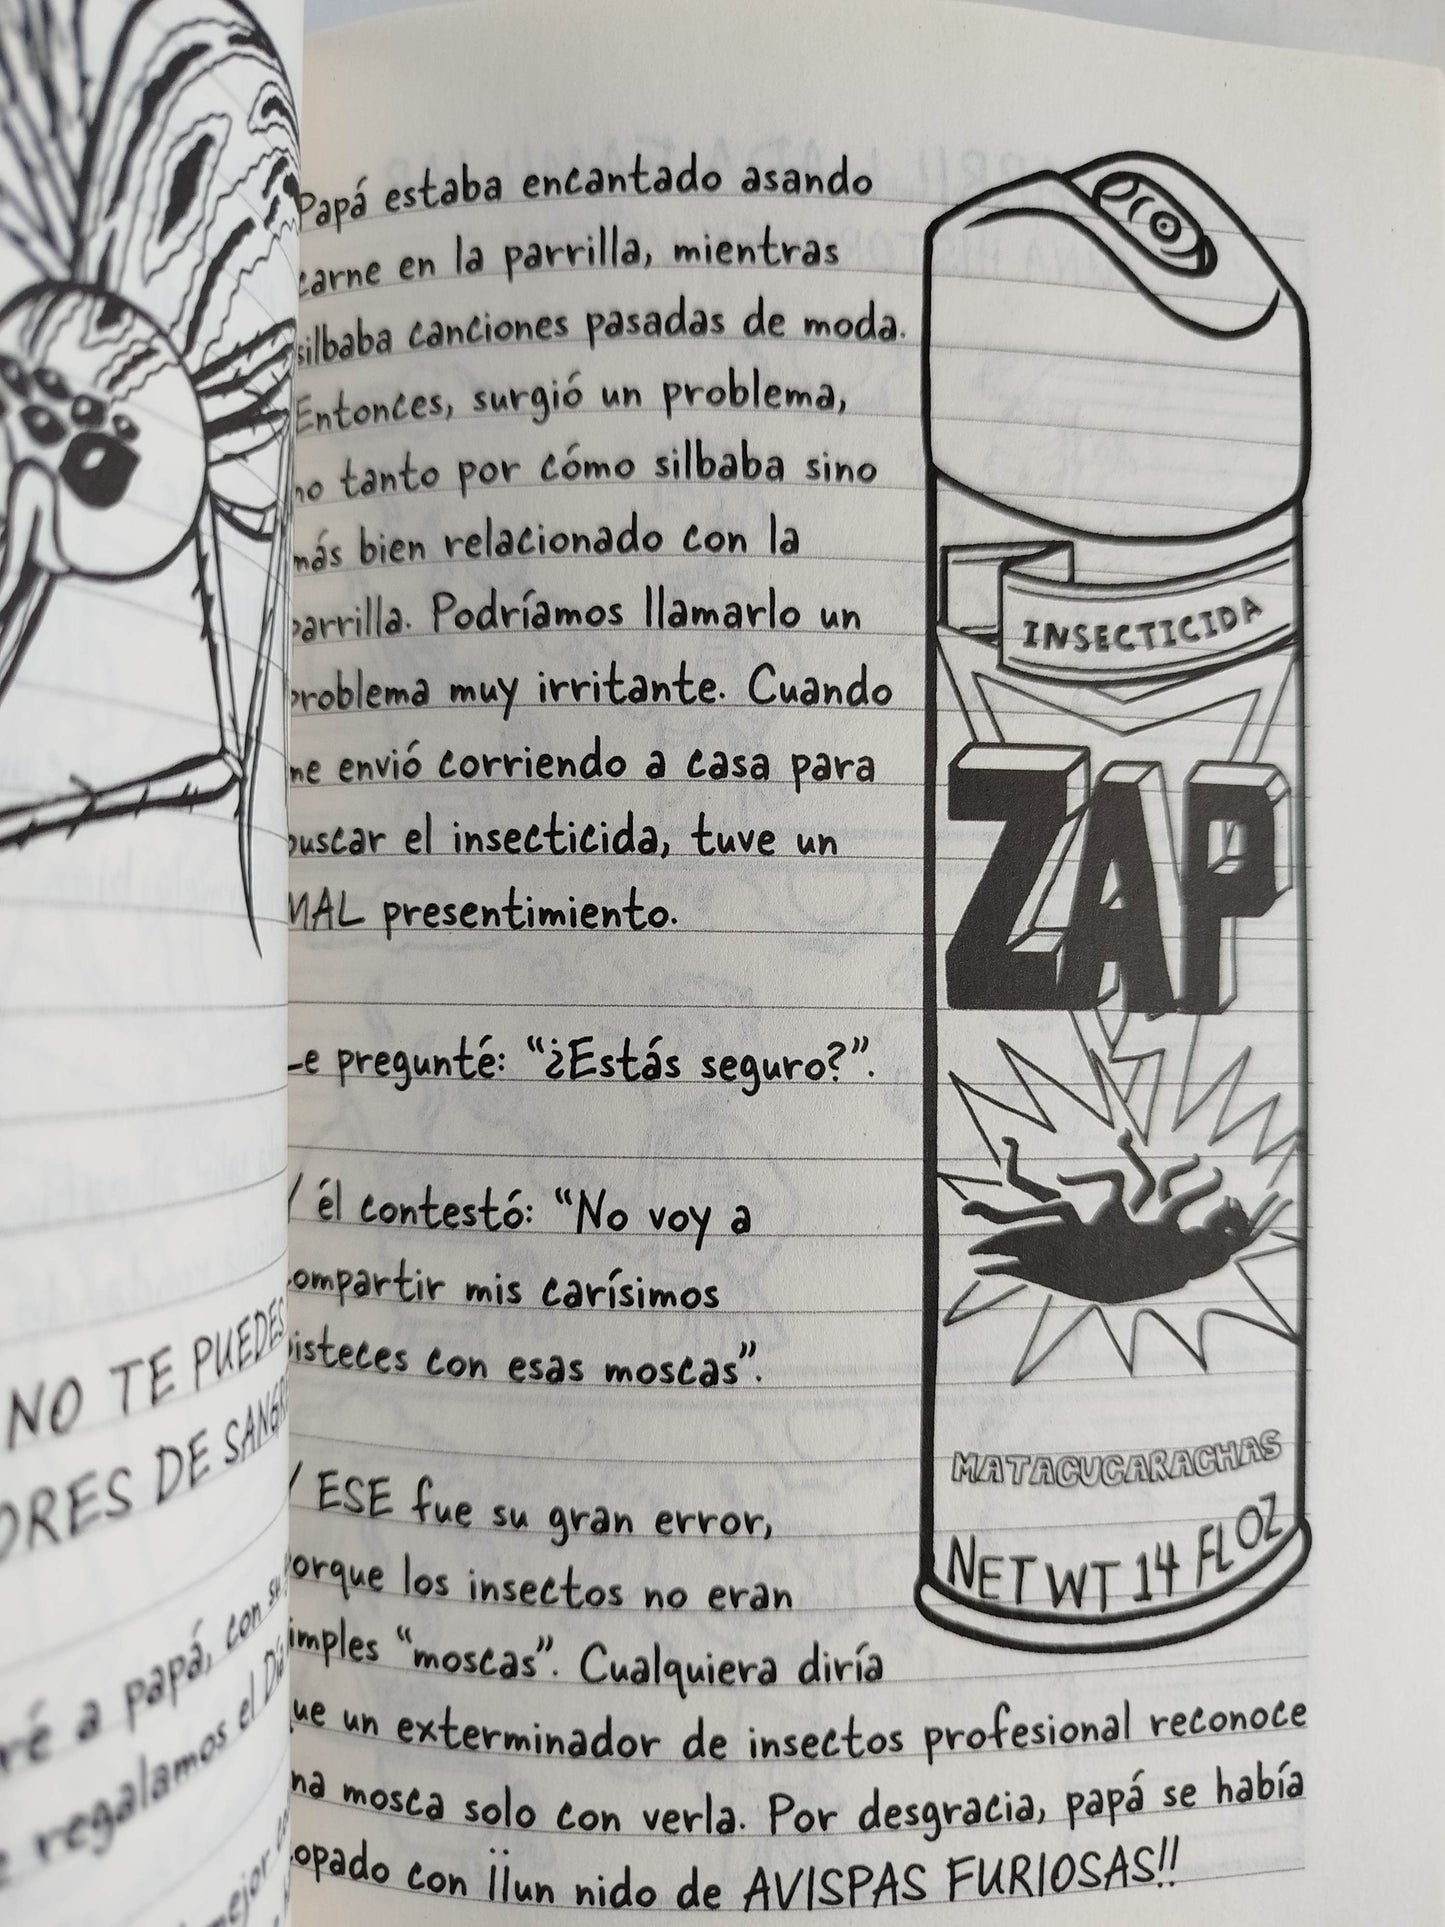 NO TE PUEDES
DE SANGR
ré a papá, con su
regalamos el Dí
mejor
Papá estaba encantado asando
carne en la parrilla, mientras
silbaba canciones pasadas de moda.
Entonces, surgió un problema,
no tanto por cómo silbaba sino
más bien relacionado con la
parrilla. Podríamos llamarlo un
problema muy irritante. Cuando
me envió corriendo a casa para
buscar el insecticida, tuve un
MAL presentimiento.
Le pregunté: “¿Estás seguro?”.
Y él contestó: “No voy a
compartir mis carísimos
bisteces con esas moscas”.
Y ESE fue su gran error,
porque los insectos no eran
simples “moscas”. Cualquiera diría
que un exterminador de insectos profesional reconoce
una mosca solo con verla. Por desgracia, papá se había
topado con ¡¡un nido de AVISPAS FURIOSAS!!
INSECTICIDA
ZAP
MATACUCARACHAS
NET WT 14 FL OZ